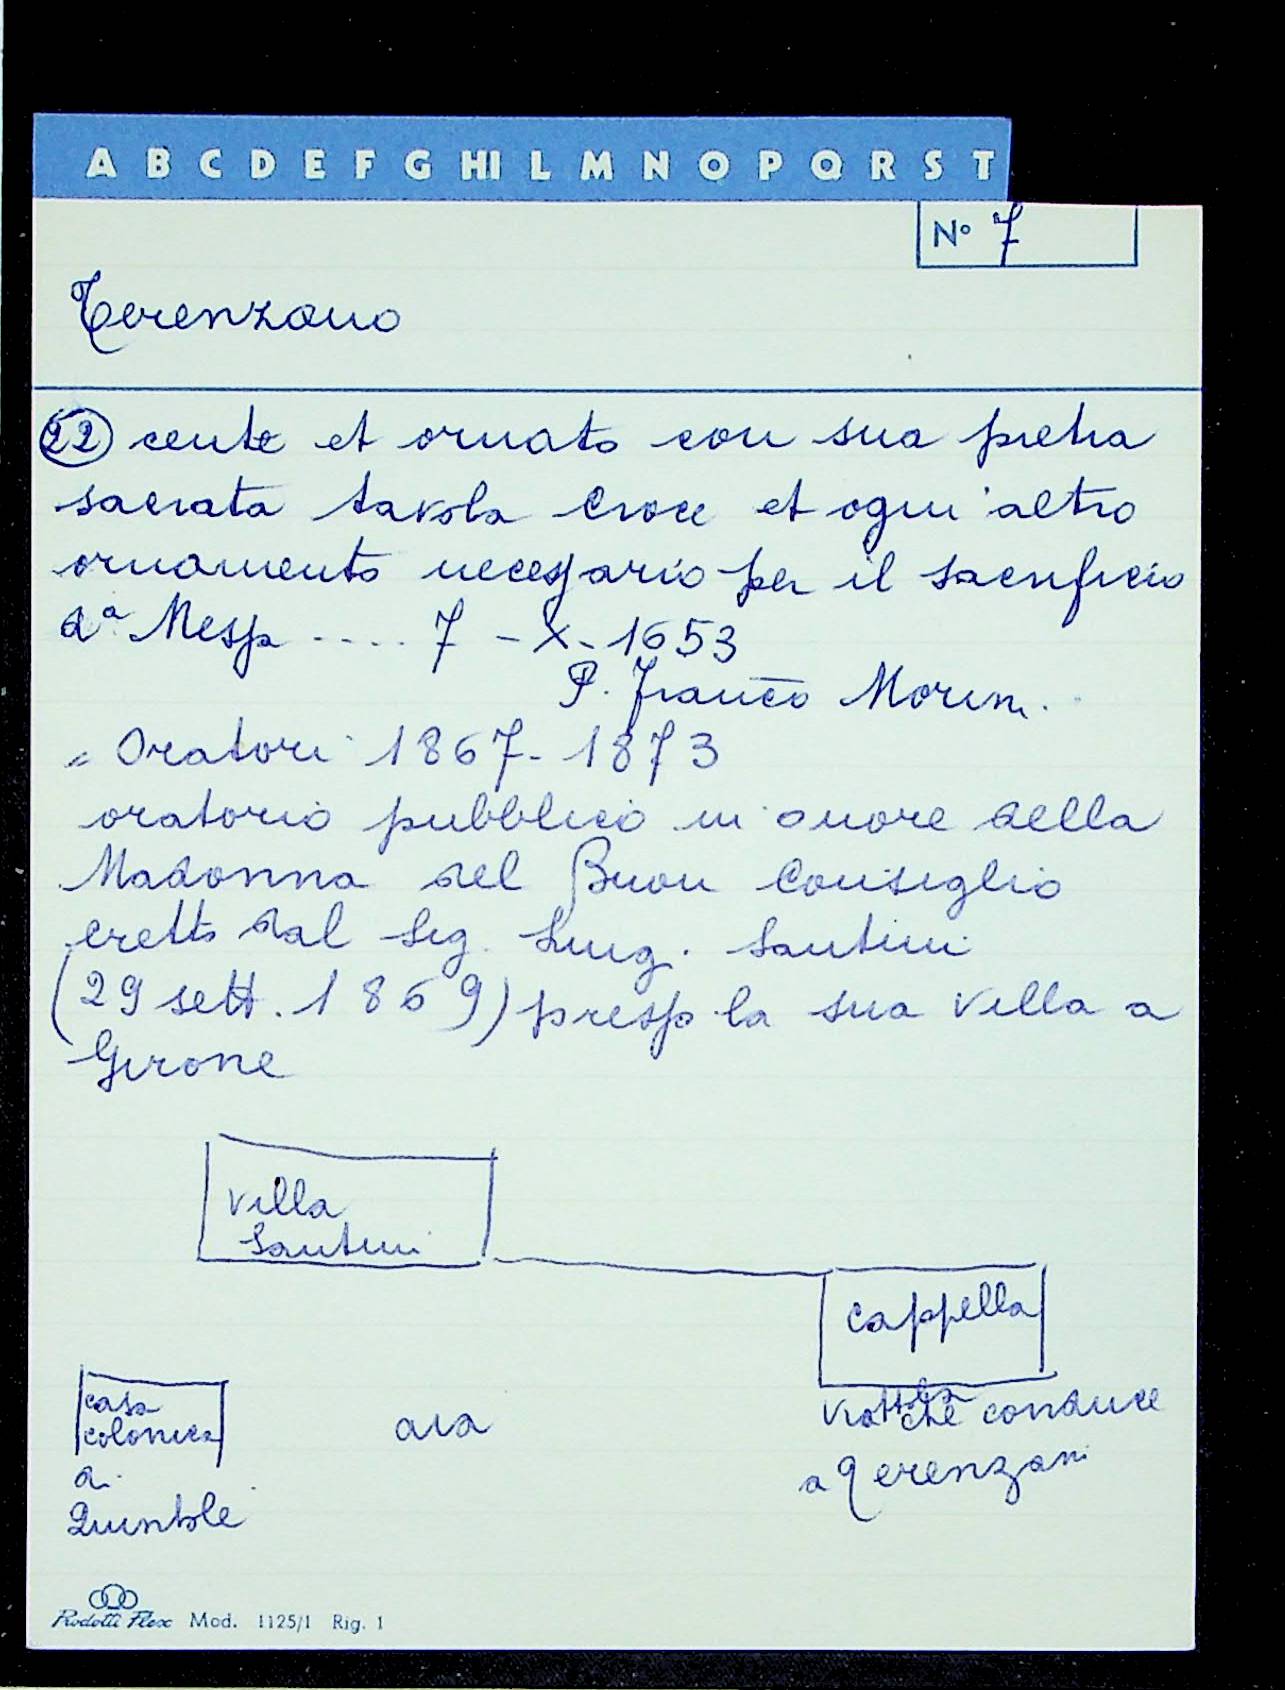 A B C D E F G HI L M N O P Q R S T
N° 7
Terenzano
22 cente et ornato con sua pietra
sacrata tavola Croce et ogni altro
ornamento necessario per il sacrificio
dª Messa .... 7 - X - 1653
P. Franco Morin.
= Oratori 1867-1873
oratorio pubblico in onore della
Madonna del Buon Consiglio
eretto dal Sig. Luig. Santini
(29 sett. 1869) presso la sua villa a
Girone
Villa
Santini
Cappella
casa
colonica
di
Quintole
aia
viottola
che conduce
a Terenzano
Rodotti Flex Mod. 1125/1 Rig. 1